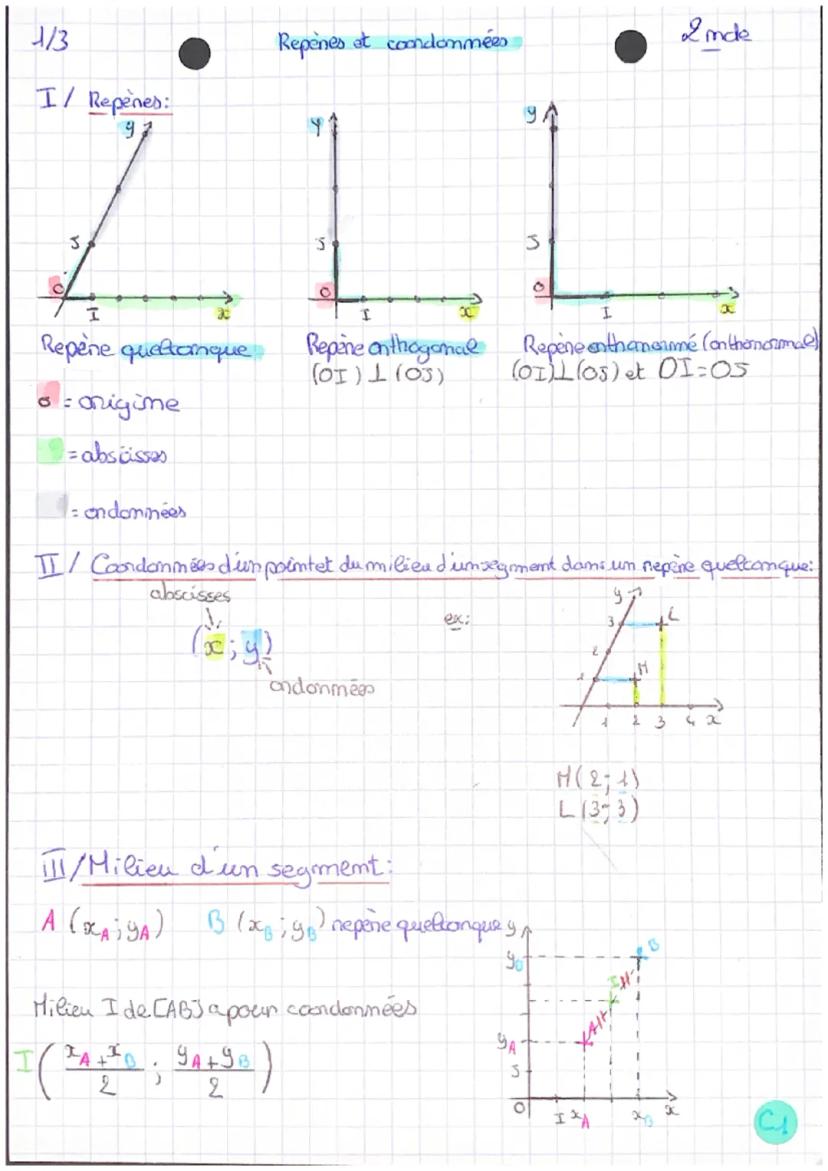 1/3 Repères et coordonnées 2nde
I/ Repères:
y y y
J J J
O I x O I x O I x
Repère quelconque Repère orthogonal Repère orthonormé (orthonormal)
(OI)⊥(OJ) (OI)⊥(OJ) et OI=OJ
o = origine
= abscisses
= ordonnées
II/ Coordonnées d'un point et du milieu d'un segment dans un repère quelconque:
abscisses
(x ; y)
ordonnées
ex:
y
3 L
2
1 M
1 2 3 4 x
M(2; 1)
L(3; 3)
III/ Milieu d'un segment:
A (xA ; yA) B (xB ; yB) repère quelconque
Milieu I de [AB] a pour coordonnées
I((xA + xB)/2 ; (yA + yB)/2)
y
yB B
I
yA A
J
O I xA xB x
C1